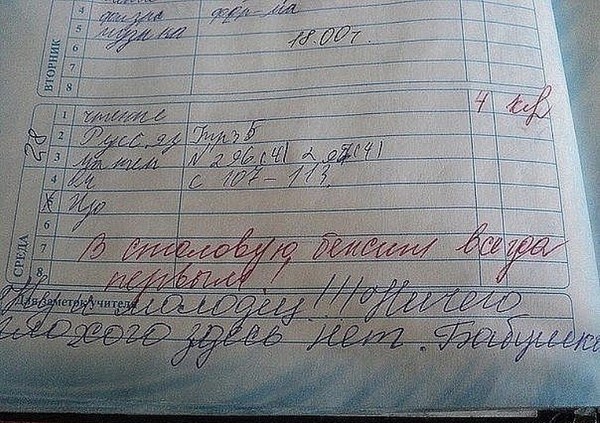 4 физра форма
5 музыка
6 18.00 г.
7
8
ВТОРНИК
28
СРЕДА
1 чтение 4
2 Русс. яз Упр 5
3 матем N 296 (4) 297 (4)
4 с 107 - 113
5 Изо
6
7 В столовую бежит всегда
8 первым!
Для заметок учителя
Ну и молодец!!! Ничего
плохого здесь нет. Бабушка